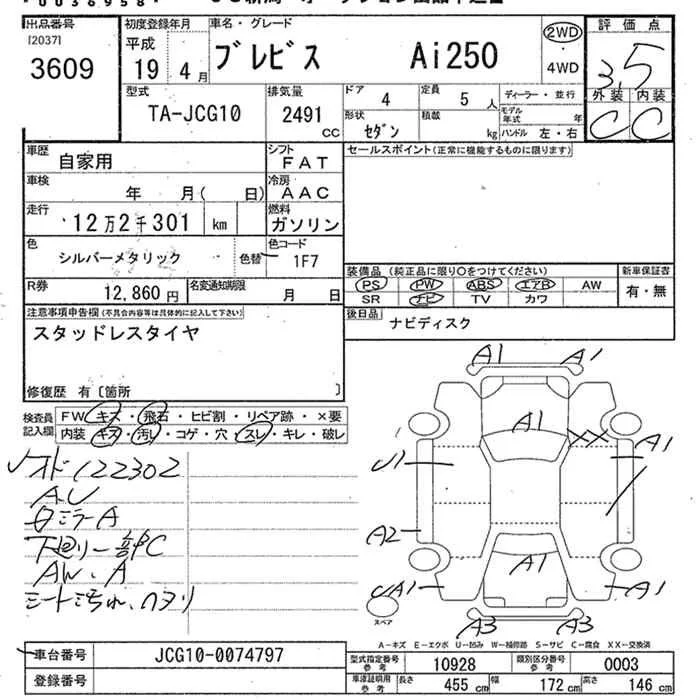 出品番号
[2037]
3609
初度登録年月
平成
19 4月
車名・グレード
ブレビス Ai250
2WD
・
4WD
評価点
3.5
外装 内装
C C
型式
TA-JCG10
排気量
2491
CC
ドア 4
定員 5 人
形状 セダン
積載 kg
ディーラー・並行
モデル年式 年
ハンドル 左・右
車歴
自家用
シフト
FAT
車検
年 月( 日)
冷房
AAC
走行
12万2千301 km
燃料
ガソリン
色
シルバーメタリック
色替
色コード
1F7
R券
12,860円
名変通知期限
月 日
セールスポイント(正常に機能するものに限ります)
装備品(純正品に限り○をつけてください)
PS PW ABS エアB AW
SR ナビ TV カワ
新車保証書
有・無
後日品 ナビディスク
注意事項申告欄(不具合内容等は具体的に記入して下さい)
スタッドレスタイヤ
修復歴 有〔箇所 〕
検査員記入欄
FW キズ・飛石・ヒビ割・リペア跡・×要
内装 キズ・汚れ・コゲ・穴・スレ・キレ・破レ
オド122302
AU
ミラーA
下廻り一部C
AW、A
シート汚れ、ヘタリ
A1 A1
A1
XX
A1
U1
A2
A1
UA1
A1
A3 A3
スペア
A-キズ E-エクボ U-凹み W-補修跡 S-サビ C-腐食 XX-交換済
車台番号
JCG10-0074797
登録番号
型式指定番号 参考 10928
類別区分番号 参考 0003
車庫証明用 参考
長さ 455 cm 幅 172 cm 高さ 146 cm